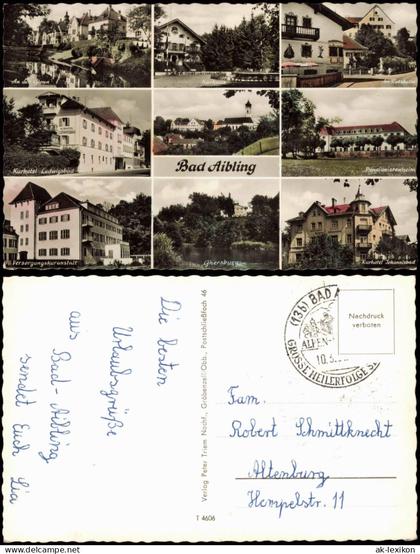 Kurhotel Ludwigsbad
Bad Aibling
Versorgungskuranstalt
Ghersburg
Kurhotel Johannisbad
Die besten
Urlaubsgrüße
aus
Bad-Aibling
sendet Euch Lia
Verlag Peter Triem Nachf., Gröbenzell-Obb., Postschließfach 46
T 4606
(13b) BAD
ALPEN-
GROSSE HEILERFOLGE
10.
Nachdruck
verboten
Fam.
Robert Schmittknecht
Altenburg
Hempelstr. 11
ak-lexikon
© ak-lexikon.de